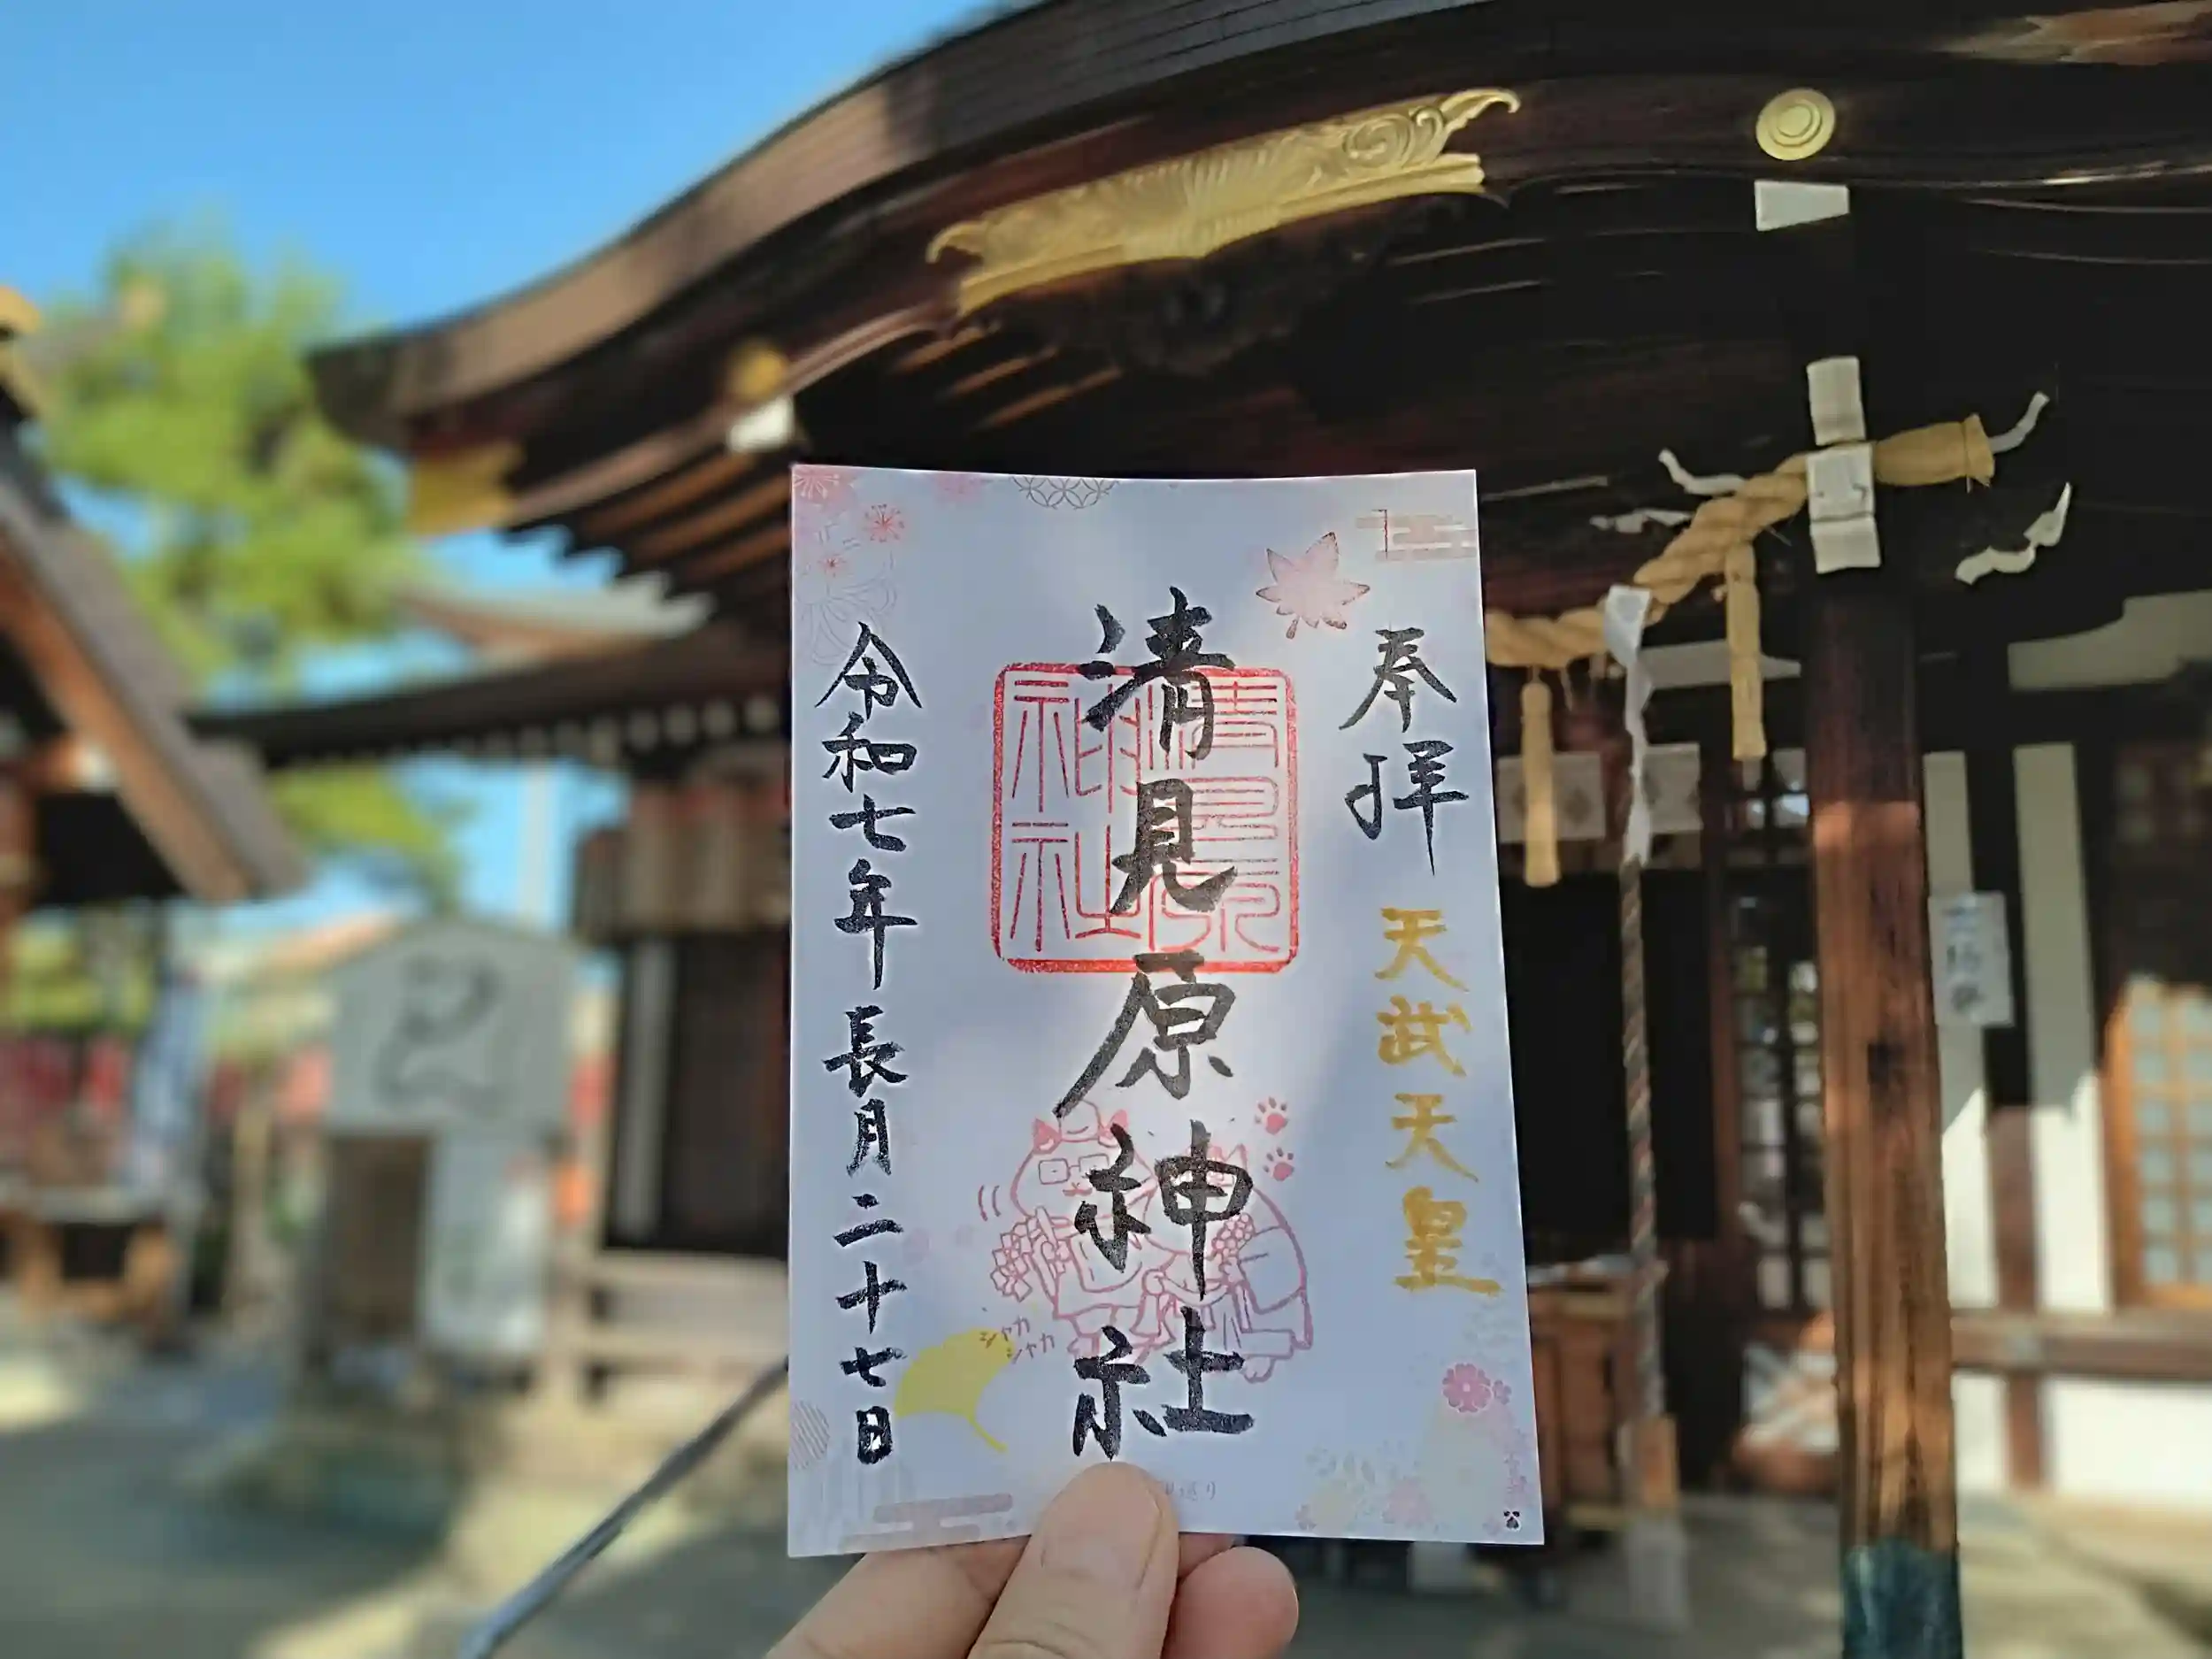 奉拝
天武天皇
清見原神社
清見原
神社
令和七年長月二十七日
シャカ
シャカ
巡り